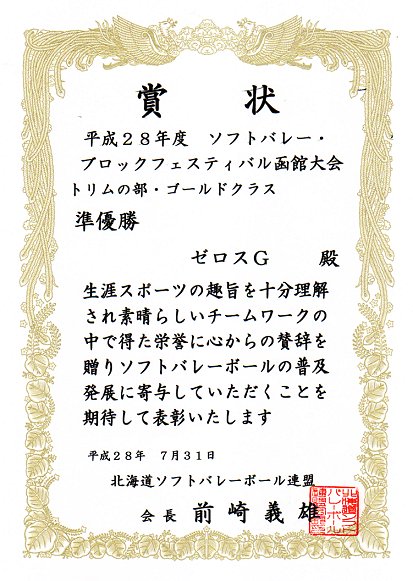 賞 状
平成２８年度 ソフトバレー・
ブロックフェスティバル函館大会
トリムの部・ゴールドクラス
準優勝
ゼロスＧ 殿
生涯スポーツの趣旨を十分理解
され素晴らしいチームワークの
中で得た栄誉に心からの賛辞を
贈りソフトバレーボールの普及
発展に寄与していただくことを
期待して表彰いたします
平成２８年 ７月３１日
北海道ソフトバレーボール連盟
会長 前崎義雄